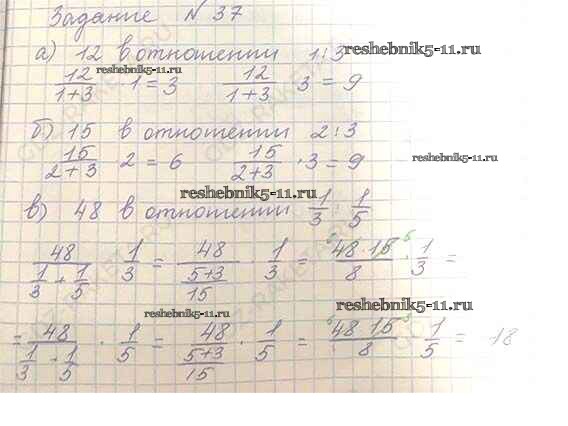 Задание №37
а) 12 в отношении 1:3 reshebnik5-11.ru
12/(1+3) · 1 = 3   12/(1+3) · 3 = 9
reshebnik5-11.ru
б) 15 в отношении 2:3
15/(2+3) · 2 = 6   15/(2+3) · 3 = 9
reshebnik5-11.ru
reshebnik5-11.ru
в) 48 в отношении 1/3 : 1/5
48/(1/3 + 1/5) · 1/3 = 48/((5+3)/15) · 1/3 = 48·15/8 · 1/3 =
reshebnik5-11.ru
reshebnik5-11.ru
= 48/(1/3 + 1/5) · 1/5 = 48/((5+3)/15) · 1/5 = 48·15/8 · 1/5 = 18